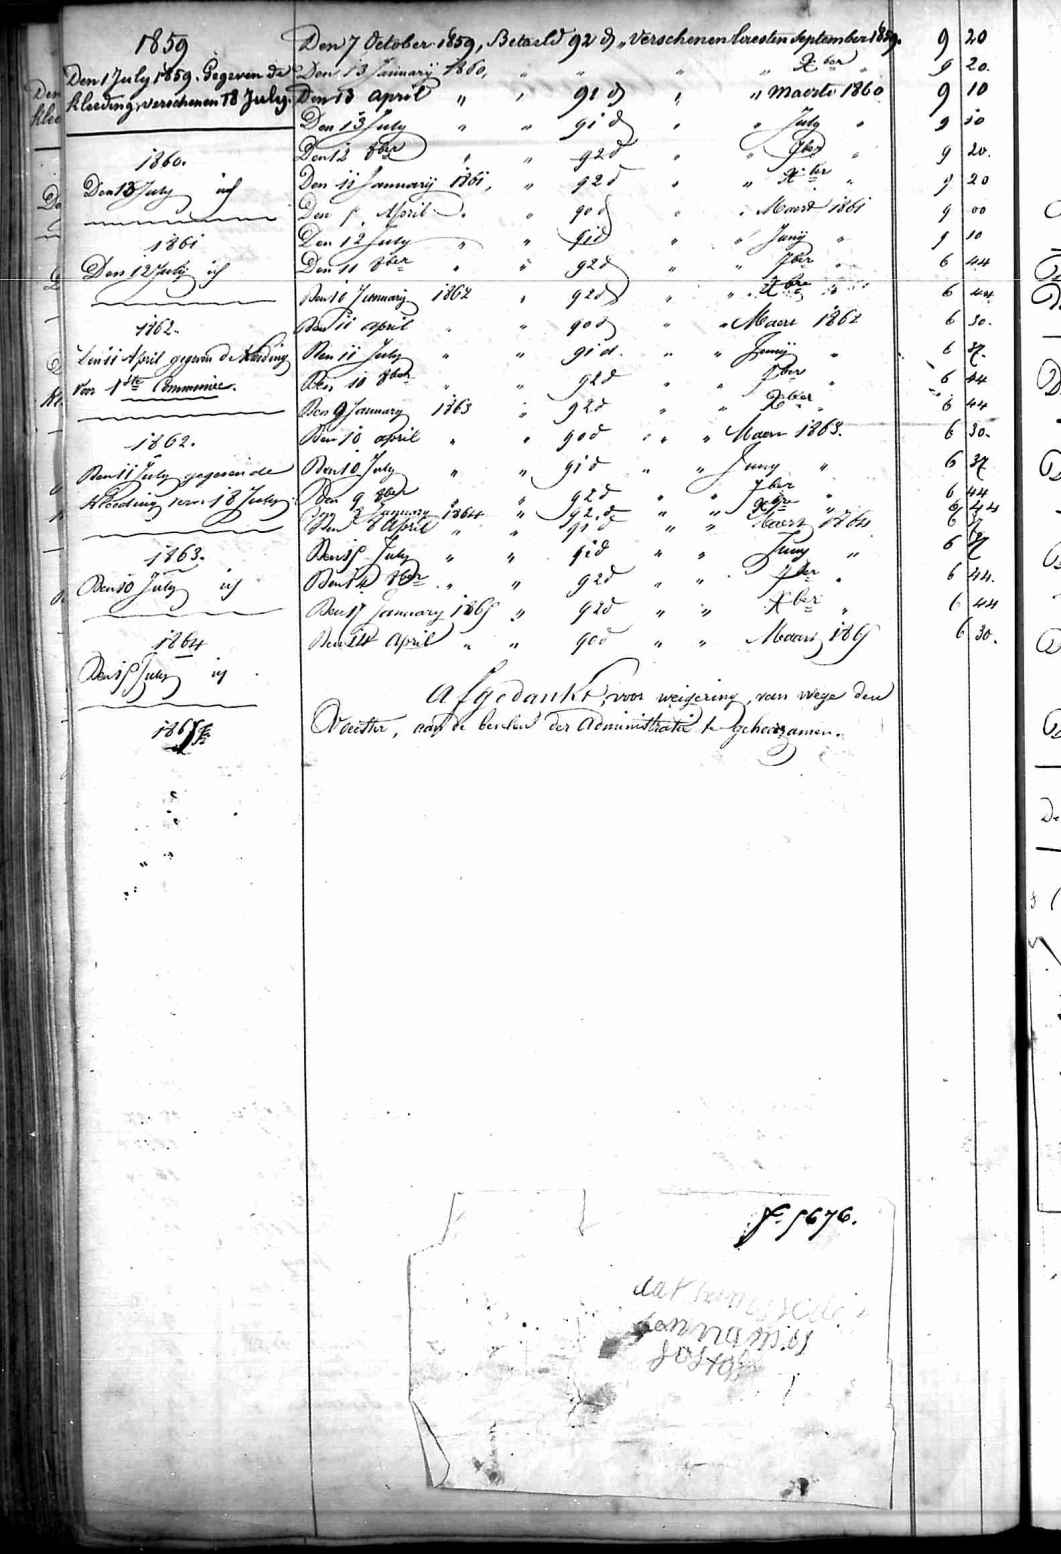 1859
Den 1 July 1859. Gegeven de
kleeding, verschenen 18 July.
1860.
Den 13 July id
1861
Den 12 July id
1862.
Den 11 April gegeven de kleeding
voor 1ste Communie.
1862.
Den 11 July gegeven de
kleeding vers 18 July
1863.
Den 10 July id
1864
Den 15 July id
1865
Den 7 October 1859, Betaeld 92 d, verschenen leesten September 1859. 9 20
Den 13 January 1860, " " " " Xber " 9 20.
Den 13 April " " 91 d " " Maerte 1860 9 10
Den 13 July " " 91 d " " July " 9 10
Den 12 8ber " " 92 d " " 7ber " 9 20.
Den 11 January 1861, " 92 d " " Xber " 9 20
Den 5 April " " 90 d " " Maert 1861 9 00
Den 12 July " " 91 d " " Juny " 9 10
Den 11 8ber " " 92 d " " 7ber " 6 44
Den 10 January 1862 " 92 d " " Xber " 6 44
Den 11 april " " 90 d " " Maert 1862 6 30.
Den 11 July " " 91 d. " " Juny " 6 37.
Den 10 8ber " " 92 d " " 7ber " 6 44
Den 9 January 1863 " 92 d " " Xber " 6 44
Den 10 april " " 90 d " " Maert 1863. 6 30.
Den 10 July " " 91 d " " Juny " 6 37
Den 9 8ber " " 92 d " " 7ber " 6 44
Den 8 January 1864 " 92. d " " Xber " 6 44
Den 8 April " " 91 d " " Maert 1864 6 37
Den 15 July " " 91 d " " Juny " 6 37
Den 14 8ber " " 92 d " " 7ber " 6 44.
Den 17 January 1865 " 92 d " " Xber " 6 44
Den 24 April " " 90 d " " Maert 1865 6 30.
Afgedankt, voor weigering, van wege den
Voester, aan de bevelen der Administratie te gehoorzamen.
f. 5676.